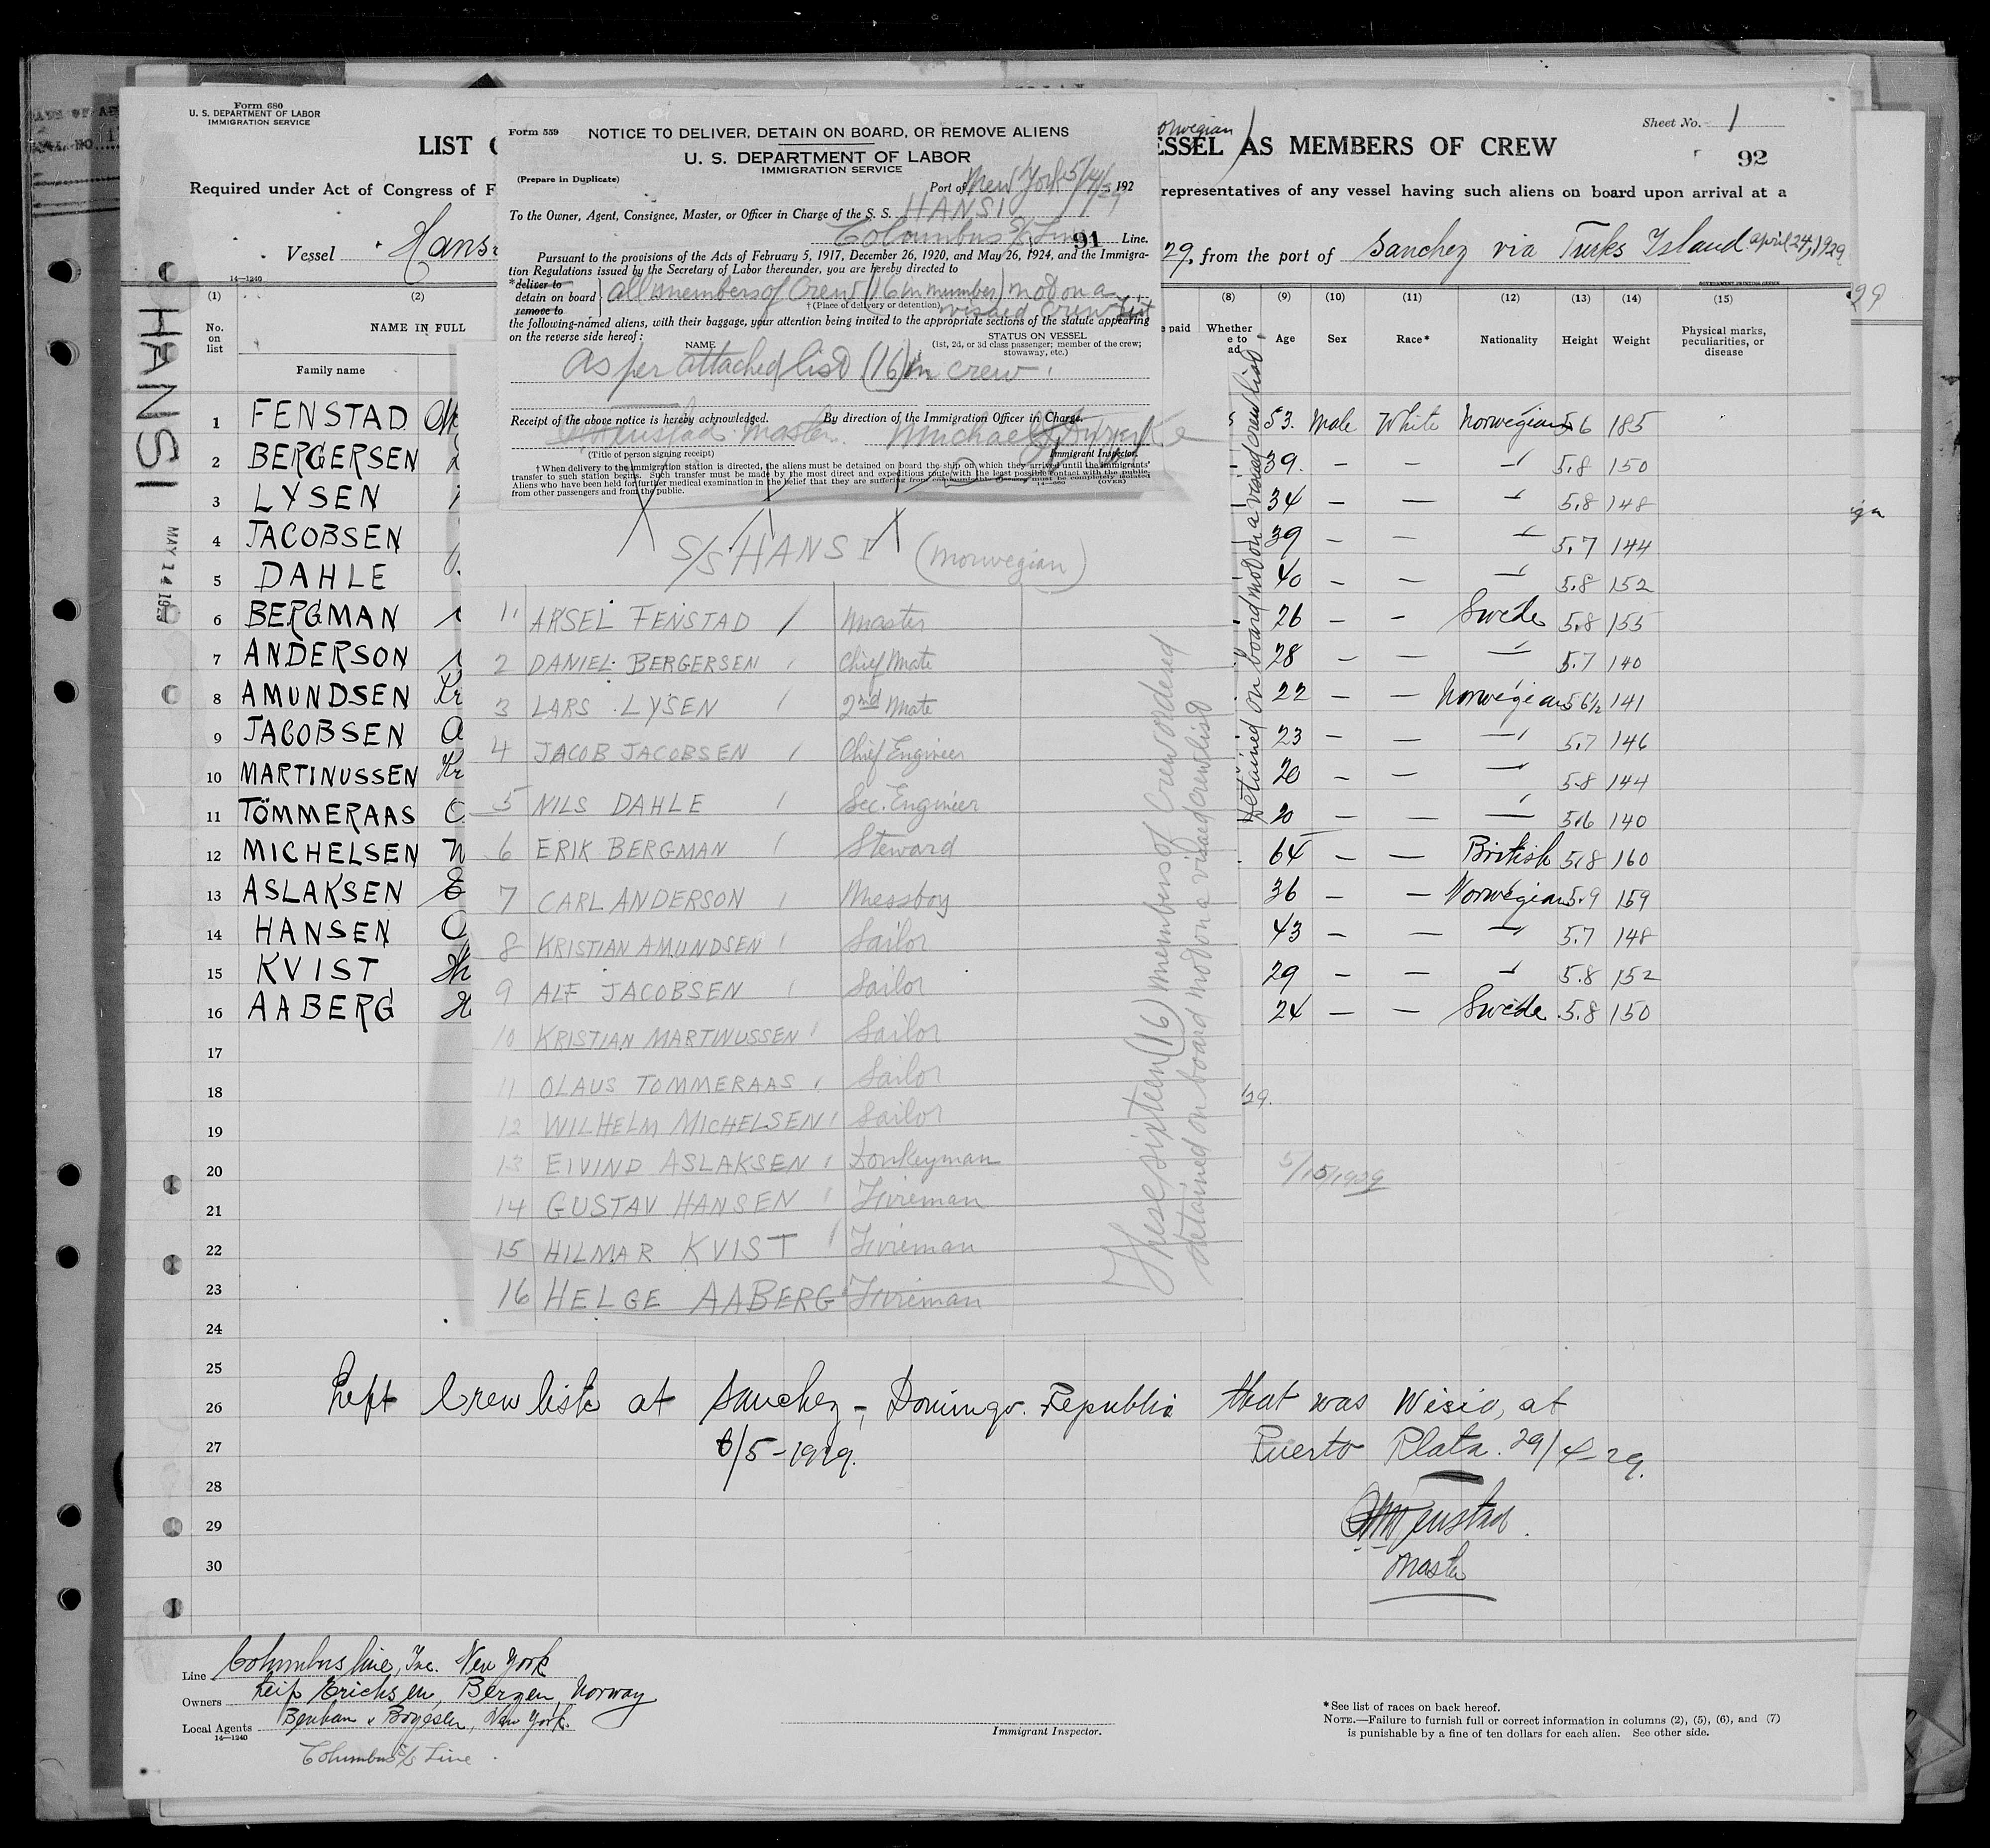 Form 680
U. S. DEPARTMENT OF LABOR
IMMIGRATION SERVICE
LIST
Required under Act of Congress of F
Vessel Hans
14—1240
(1) (2)
No. on list
NAME IN FULL
Family name
HANSI
MAY 14 1929
1 FENSTAD
2 BERGERSEN
3 LYSEN
4 JACOBSEN
5 DAHLE
6 BERGMAN
7 ANDERSON
8 AMUNDSEN Kr
9 JACOBSEN A
10 MARTINUSSEN Kr
11 TÖMMERAAS O
12 MICHELSEN W
13 ASLAKSEN E
14 HANSEN
15 KVIST
16 AABERG H
17
18
19
20
21
22
23
24
25
26
27
28
29
30
Form 559
NOTICE TO DELIVER, DETAIN ON BOARD, OR REMOVE ALIENS
U. S. DEPARTMENT OF LABOR
IMMIGRATION SERVICE
(Prepare in Duplicate)
Port of New York 5/14/29, 192
To the Owner, Agent, Consignee, Master, or Officer in Charge of the S. S. HANSI
Columbus S/S Line 91 Line.
Pursuant to the provisions of the Acts of February 5, 1917, December 26, 1920, and May 26, 1924, and the Immigra-
tion Regulations issued by the Secretary of Labor thereunder, you are hereby directed to
*deliver to
detain on board
remove to
all members of Crew (16 in number) not on a
visaed crew list
†(Place of delivery or detention)
the following-named aliens, with their baggage, your attention being invited to the appropriate sections of the statute appearing
on the reverse side hereof:
NAME
STATUS ON VESSEL
(1st, 2d, or 3d class passenger; member of the crew;
stowaway, etc.)
As per attached list (16) in crew.
Receipt of the above notice is hereby acknowledged. By direction of the Immigration Officer in Charge.
Fenstad Master. Michael
(Title of person signing receipt) Immigrant Inspector.
† When delivery to the immigration station is directed, the aliens must be detained on board the ship on which they arrived until the immigrants'
transfer to such station begins. Such transfer must be made by the most direct and expeditious route with the least possible contact with the public.
Aliens who have been held for further medical examination in the belief that they are suffering from communicable diseases must be completely isolated
from other passengers and from the public.
14—660 (OVER)
S/S HANSI (Norwegian)
1 ARSEL FENSTAD Master
2 DANIEL BERGERSEN Chief Mate
3 LARS LYSEN 2nd Mate
4 JACOB JACOBSEN Chief Engineer
5 NILS DAHLE Sec. Engineer
6 ERIK BERGMAN Steward
7 CARL ANDERSON Messboy
8 KRISTIAN AMUNDSEN Sailor
9 ALF JACOBSEN Sailor
10 KRISTIAN MARTINUSSEN Sailor
11 OLAUS TOMMERAAS Sailor
12 WILHELM MICHELSEN Sailor
13 EIVIND ASLAKSEN Donkeyman
14 GUSTAV HANSEN Fireman
15 HILMAR KVIST Fireman
16 HELGE AABERG Fireman
These sixteen (16) members of Crew ordered
detained on board not on a visaed crew list
orwegian
ESSEL AS MEMBERS OF CREW
Sheet No. 1
92
representatives of any vessel having such aliens on board upon arrival at a
29, from the port of Sanchez via Turks Island april 24, 1929
GOVERNMENT PRINTING OFFICE
(8) (9) (10) (11) (12) (13) (14) (15)
e paid
Whether
e to
ad
Age Sex Race* Nationality Height Weight Physical marks, peculiarities, or disease
Detained on board not on a visaed crew list.
53. Male White Norwegian 5 6 185
39. — — — 5.8 150
34 — — — 5.8 148
39 — — — 5.7 144
40 — — — 5.8 152
26 — — Swede 5.8 155
28 — — — 5.7 140
22 — — Norwegian 5 6½ 141
23 — — — 5.7 146
20 — — — 5.8 144
20 — — — 5.6 140
64 — — British 5.8 160
36 — — Norwegian 5.9 159
43 — — — 5.7 148
29 — — — 5.8 152
24 — — Swede 5.8 150
29.
5/15/1929
Left Crew liste at Sanchez - Domingo. Republic that was Wisio, at
6/5-1929. Puerto Plata. 29/4-29.
Fenstad.
Master
Line Columbus line, Inc. New York
Owners Leif Erichsen, Bergen, Norway
Local Agents Benham & Boyesen, New York.
14—1240
Columbus S/S Line
Immigrant Inspector.
*See list of races on back hereof.
NOTE.—Failure to furnish full or correct information in columns (2), (5), (6), and (7)
is punishable by a fine of ten dollars for each alien. See other side.